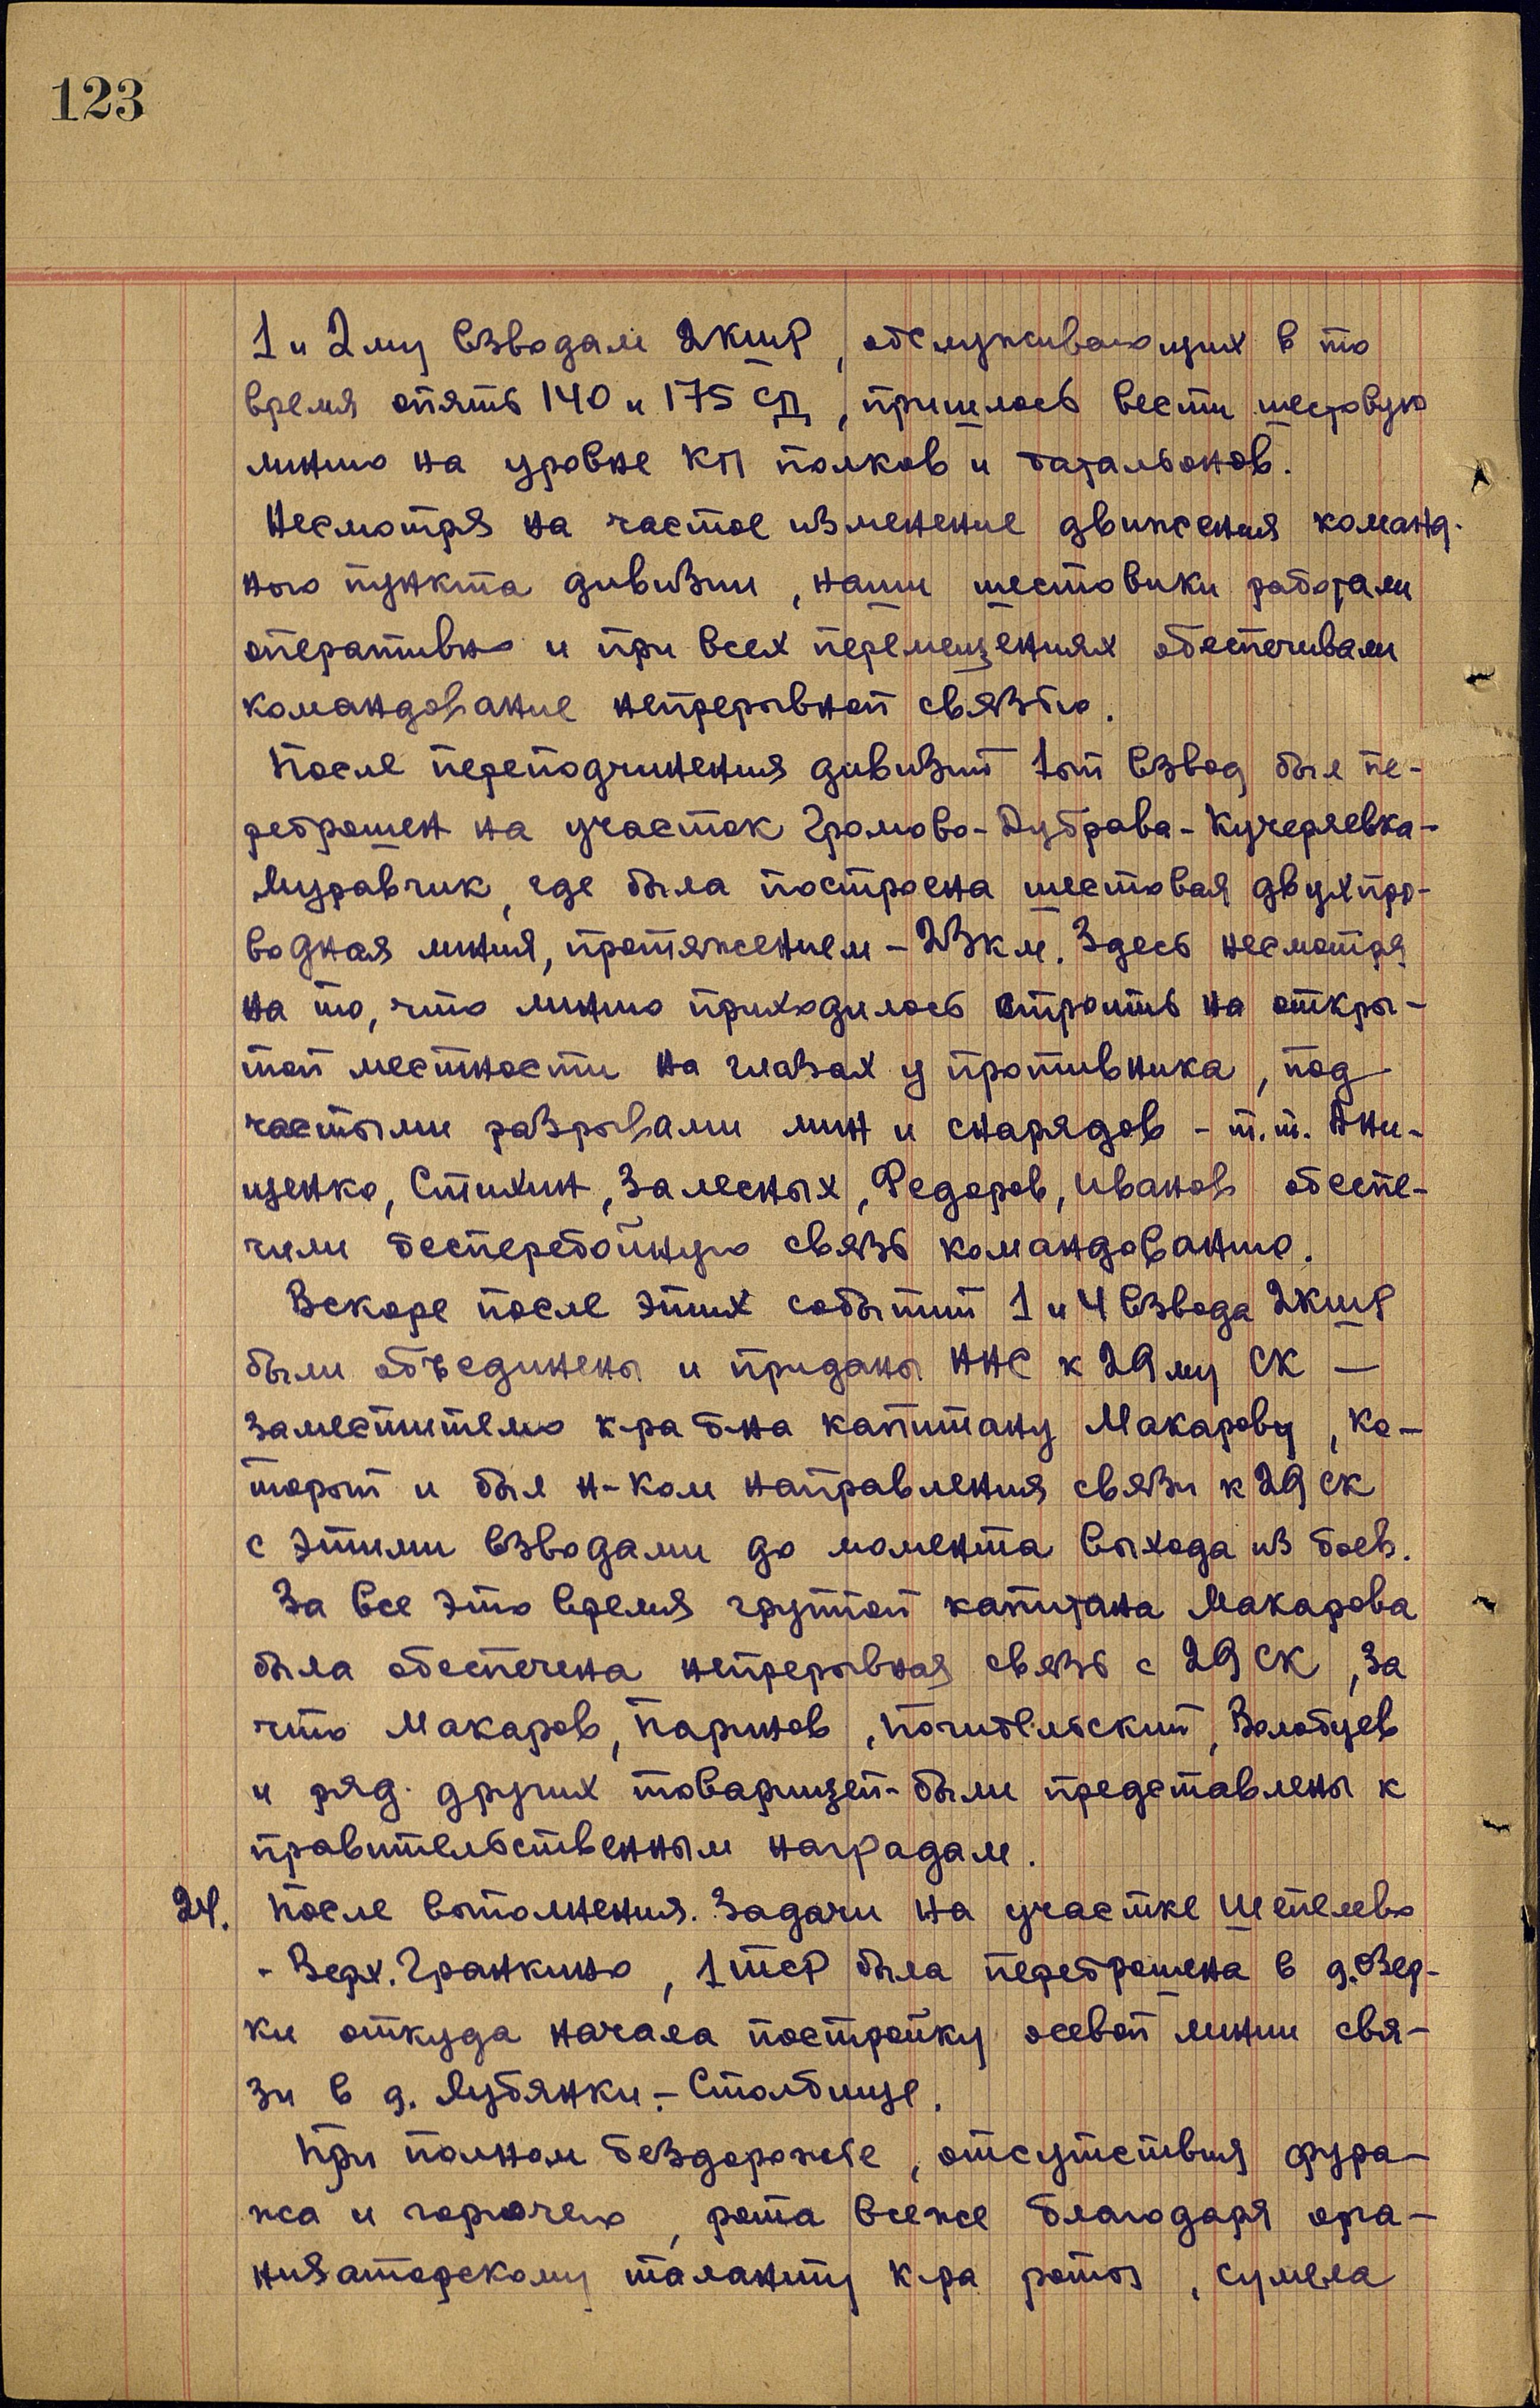 123
1 и 2му взводам 2КШР, обслуживающих в то
время опять 140 и 175 СД, пришлось вести шестовую
линию на уровне КП полков и батальонов.
Несмотря на частое изменение движения команд-
ного пункта дивизии, наши шестовики работали
оперативно и при всех перемещениях обеспечивали
командование непрерывной связью.
После переподчинения дивизий 1ый взвод был пе-
реброшен на участок Громово-Дубрава-Кучеряевка-
Муравчик, где была построена шестовая двухпро-
водная линия, протяжением - 23км. Здесь несмотря
на то, что линию приходилось строить на откры-
той местности на глазах у противника, под
частыми разрывами мин и снарядов - т.т. Они-
щенко, Стихин, Залесных, Федоров, Иванов обеспе-
чили бесперебойную связь командованию.
Вскоре после этих событий 1 и 4 взвода 2КШР
были объединены и приданы ННС к 29му СК —
заместителю к-ра б-на капитану Макарову, ко-
торый и был н-ком направления связи к 29 СК
с этими взводами до момента выхода из боев.
За все это время группой капитана Макарова
была обеспечена непрерывная связь с 29 СК, за
что Макаров, Паринов, Погибельский, Волобуев
и ряд других товарищей - были представлены к
правительственным наградам.
24. После выполнения задачи на участке Шепелево
- Верх. Гранкино, 1 ТСР была переброшена в д. Озер-
ки откуда начала постройку осевой линии свя-
зи в д. Лубянки - Столбище.
При полном бездорожье, отсутствия фура-
жа и горючего, рота всеже благодаря орга-
низаторскому таланту к-ра роты, сумела